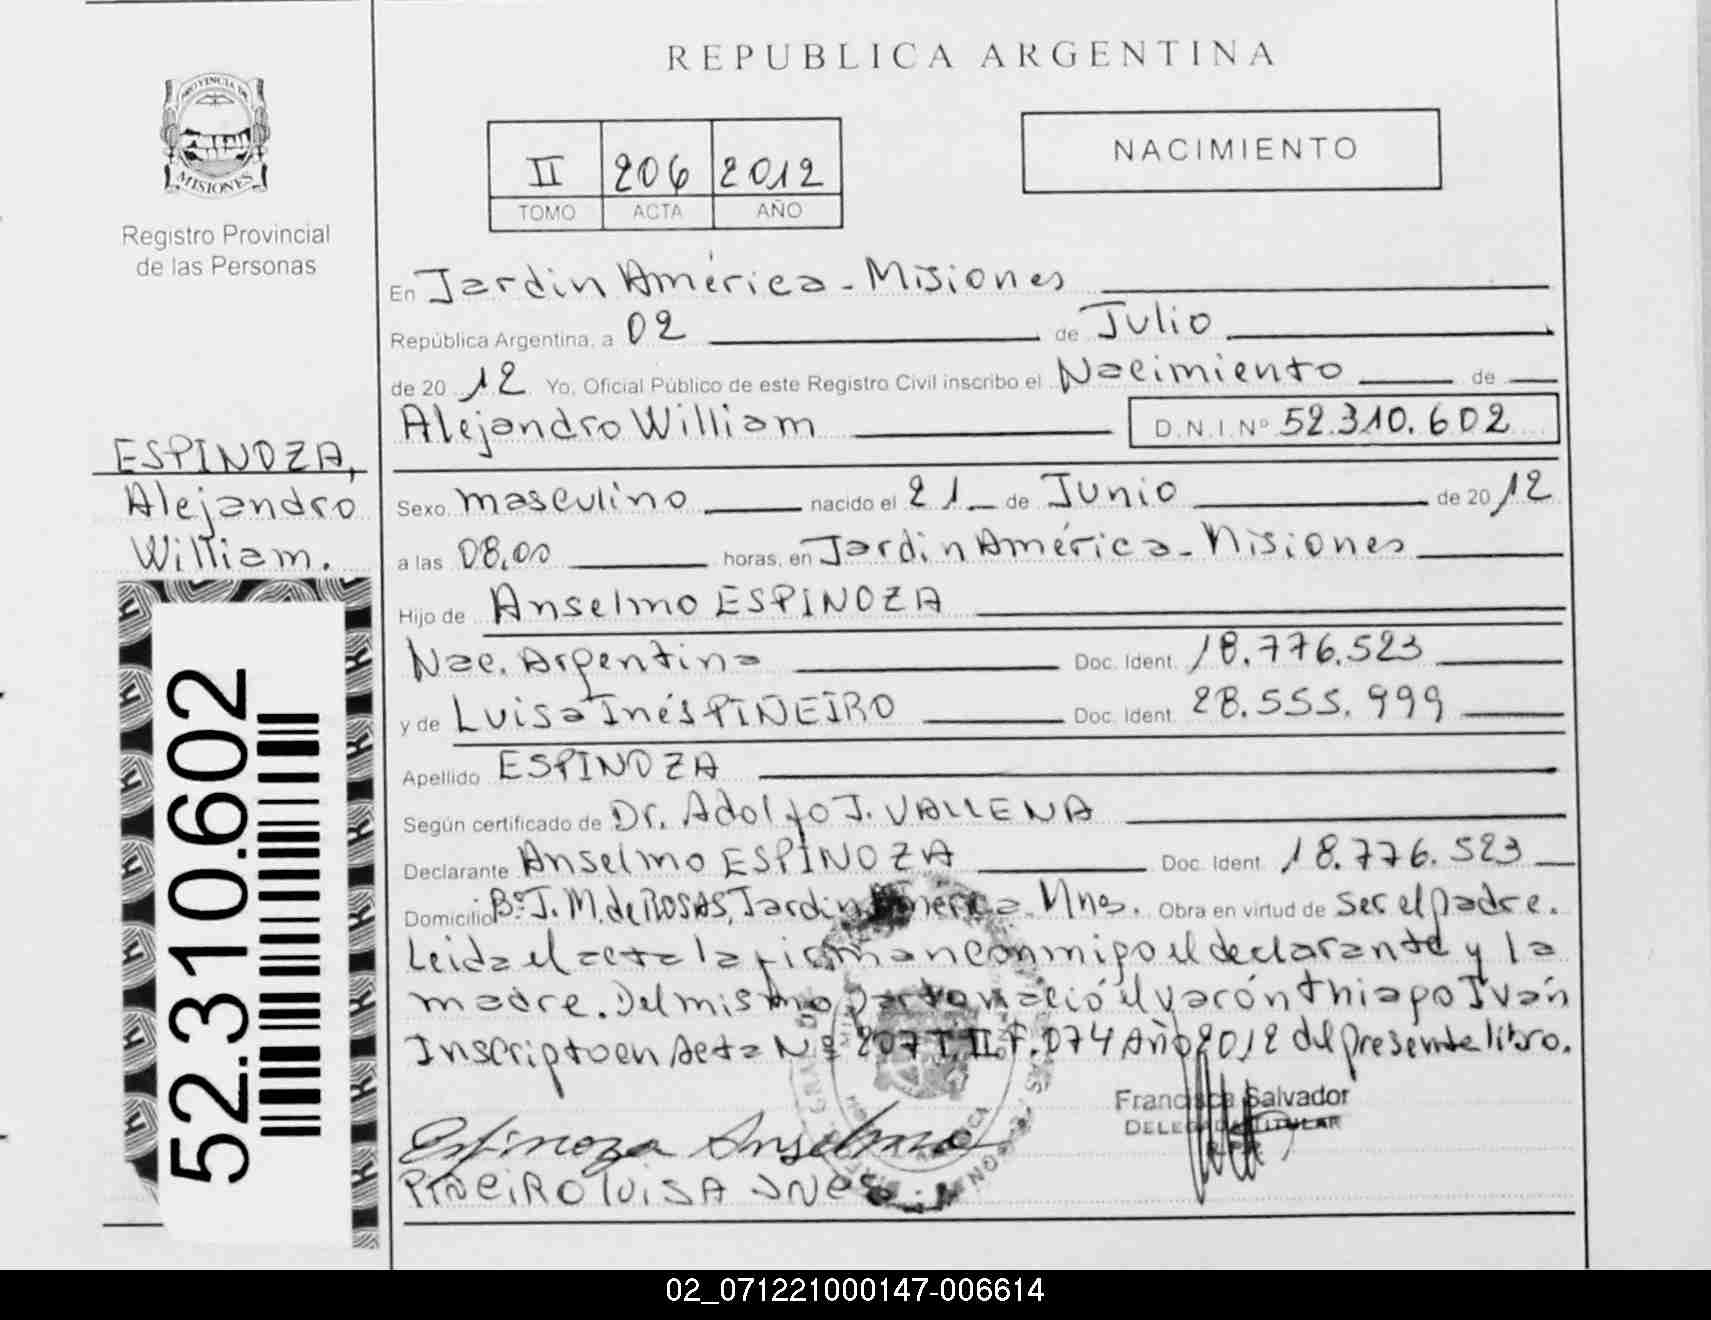 REPUBLICA ARGENTINA
PROVINCIA DE
MISIONES
Registro Provincial
de las Personas
II 206 2012
TOMO ACTA AÑO
NACIMIENTO
En Jardin América - Misiones
República Argentina, a 02 de Julio
de 2012 Yo, Oficial Público de este Registro Civil inscribo el Nacimiento de
Alejandro William D.N.I.Nº 52.310.602
ESPINOZA,
Alejandro
William.
Sexo masculino nacido el 21 de Junio de 2012
a las 08,00 horas, en Jardin América - Misiones
Hijo de Anselmo ESPINOZA
Nac. Argentina Doc. Ident. 18.776.523
y de Luisa Inés PIÑEIRO Doc. Ident. 28.555.999
Apellido ESPINOZA
Según certificado de Dr. Adolfo J. VALLENA
Declarante Anselmo ESPINOZA Doc. Ident. 18.776.523
Domicilio Bº J. M. de ROSAS, Jardin América - Mnes. Obra en virtud de ser el padre.
Leida el acta la firman conmigo el declarante y la
madre. Del mismo parto nació el varón Thiago Iván
Inscripto en Acta Nº 207 T. II F. 074 Año 2012 del presente libro.
Francisca Salvador
DELEGADA TITULAR
Espinoza Anselmo
PIÑEIRO luISA INES
52.310.602
02_071221000147-006614